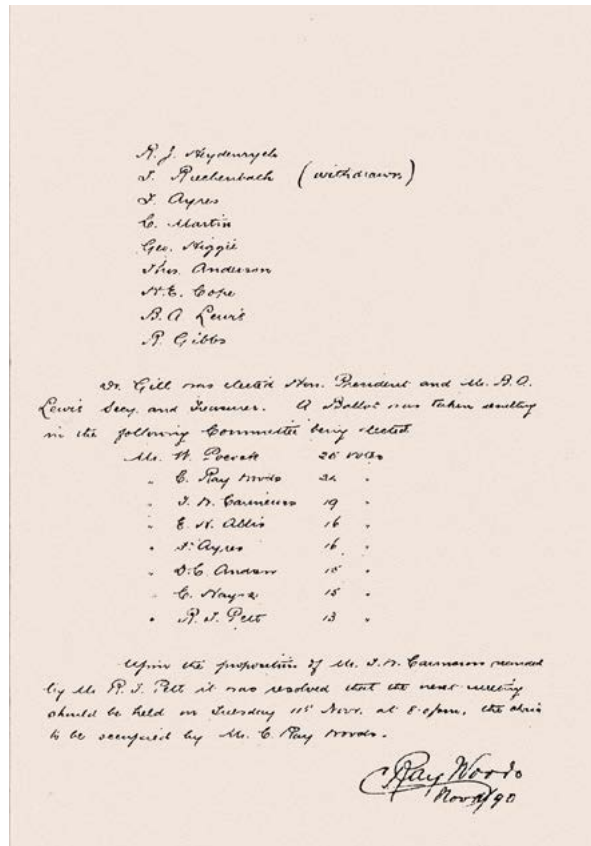 R. J. Heydenrych
F. Riechenbach (withdrawn)
F. Ayres
C. Martin
Geo. Higgie
Thos. Anderson
H. E. Cope
B. A Lewis
R. Gibbs
Dr. Gill was elected Hon. President and Mr. B. A.
Lewis Secy. and Treasurer. A Ballot was taken resulting
in the following Committee being elected
Mr. W. Pocock 25 votes
" C. Ray Woods
" J. N. 19 "
" E. H. Allis 16 "
" F. Ayres 16 "
" D. C. Andrew 15 "
" C. 15 "
" R. J. Pett 13 "
Upon the proposition of Mr. J. N. seconded
by Mr R. J. Pett it was resolved that the next meeting
should be held on Tuesday 11th Novr. at 8. o/pm, the chair
to be occupied by Mr. C. Ray Woods.
C. Ray Woods
Nov /90